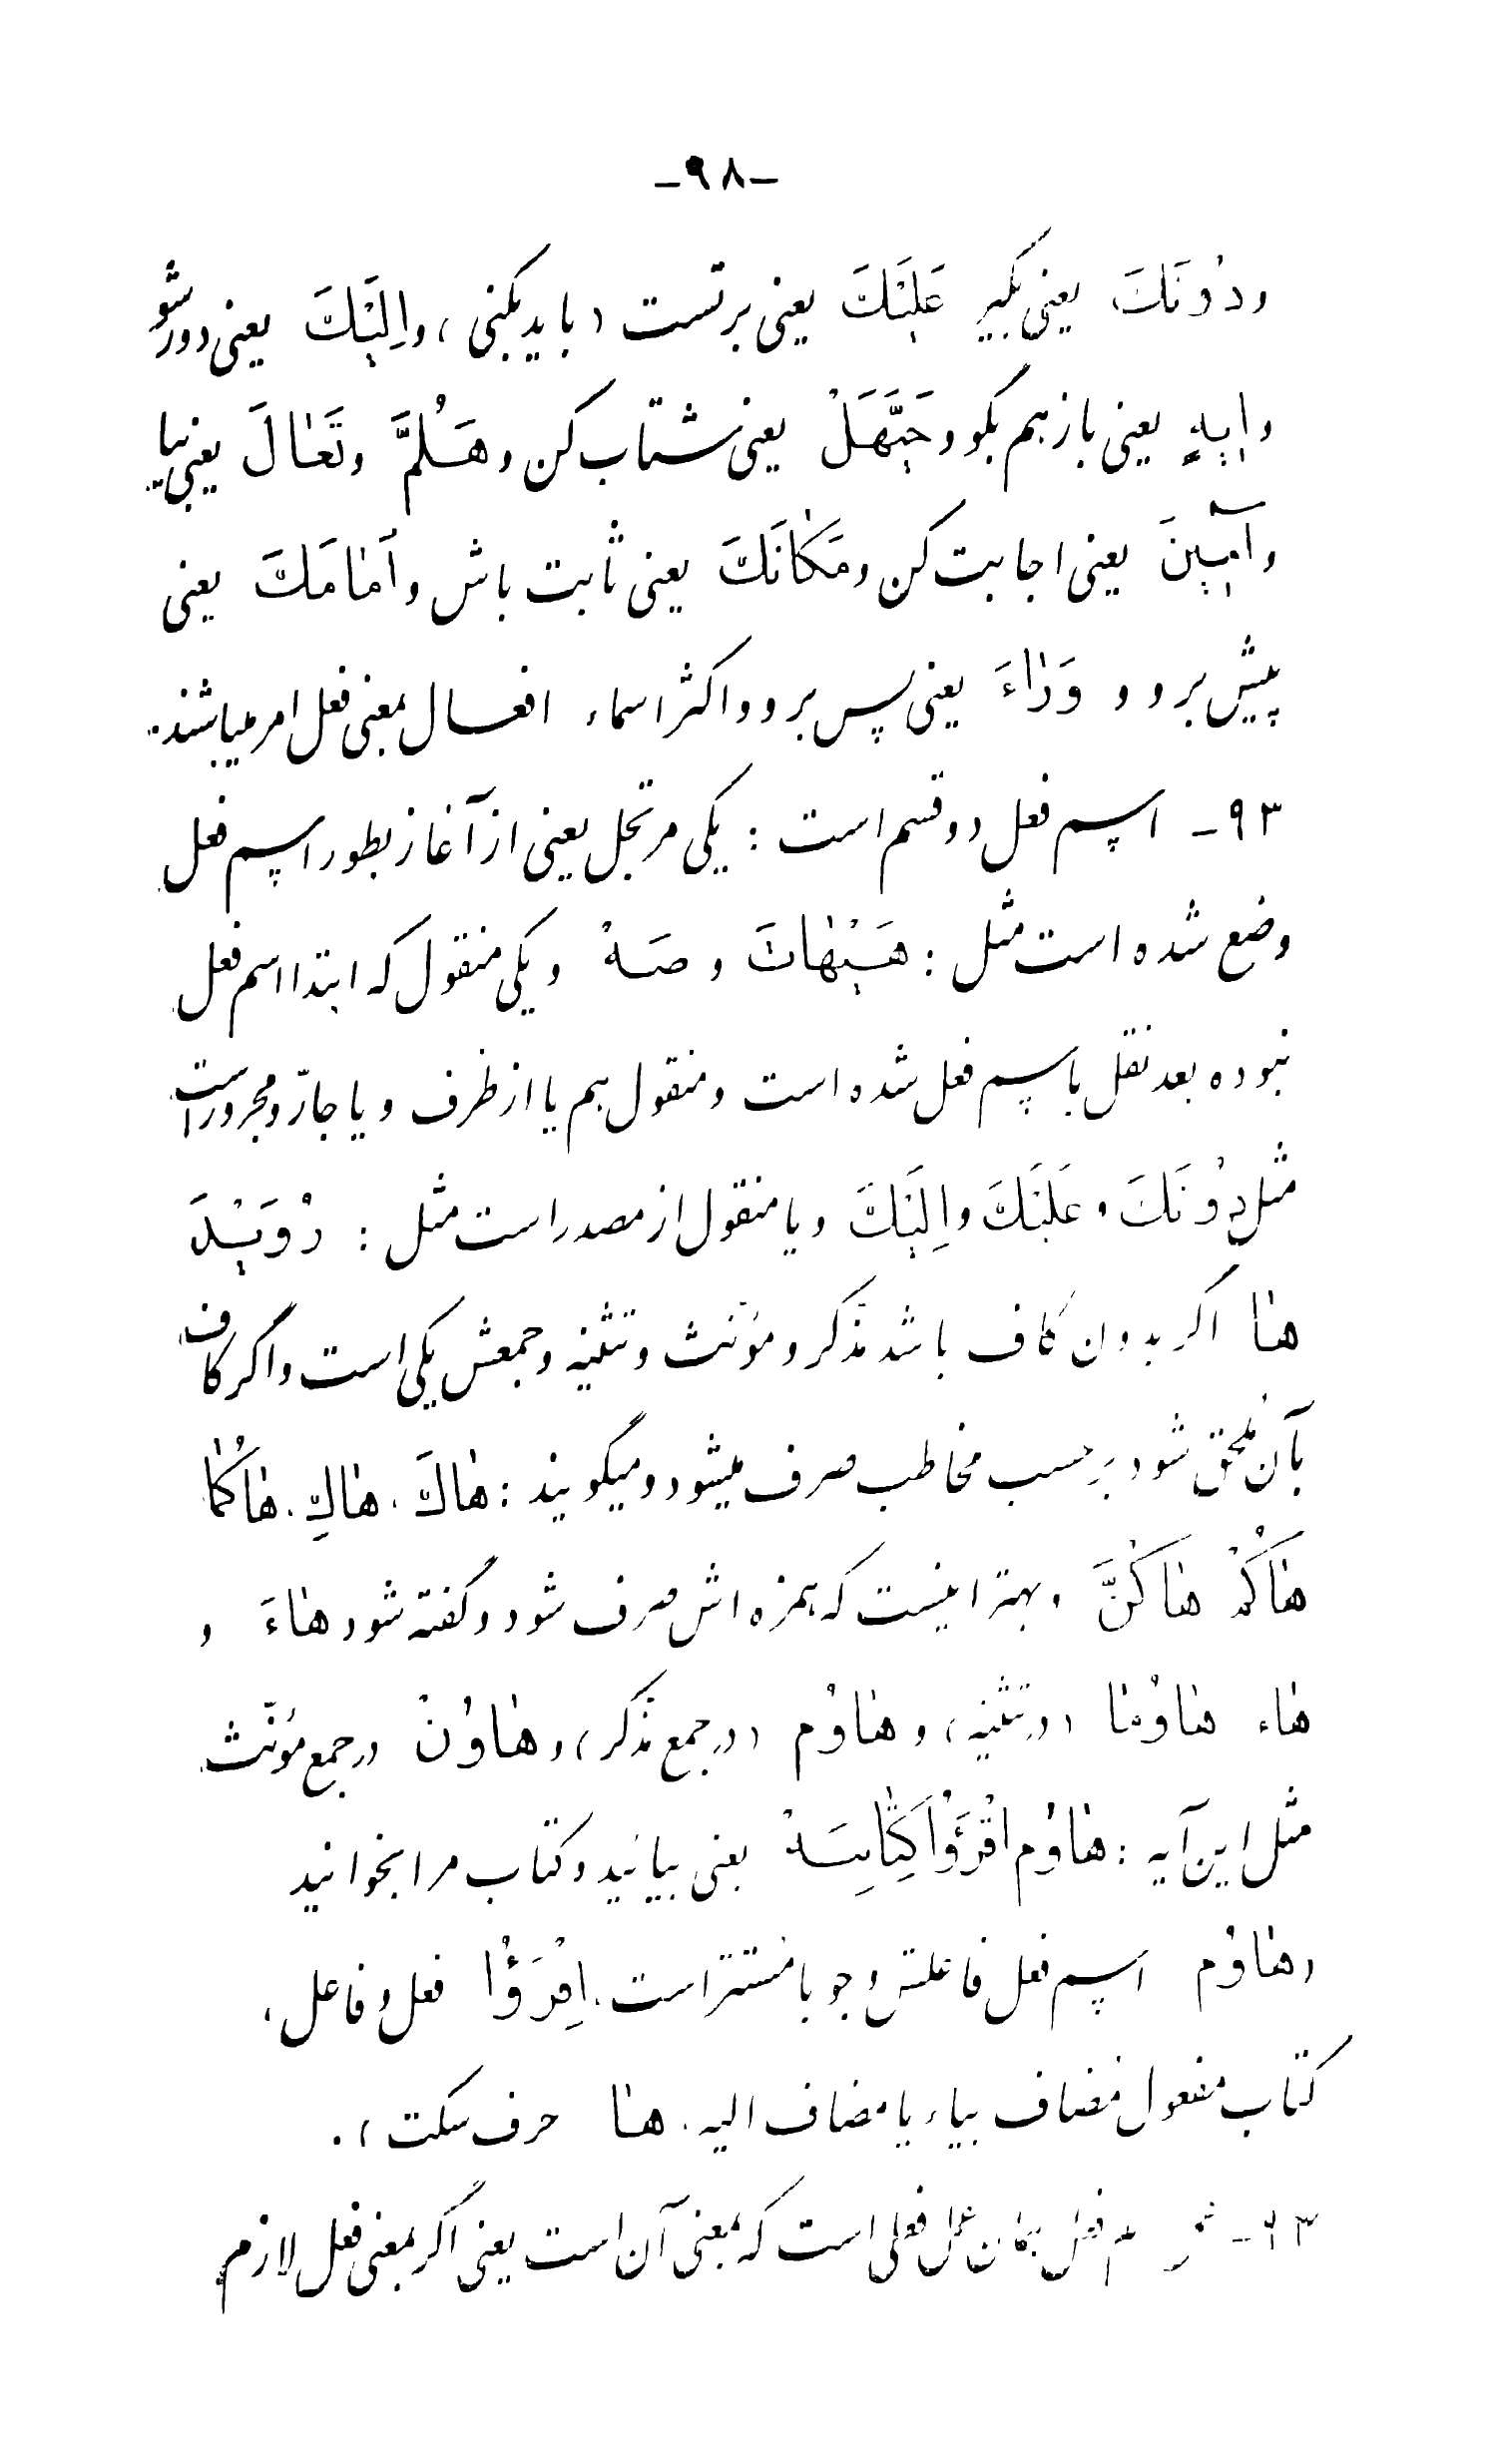 -۹۸-
ودُونَكَ یعنی بگیر عَلَیْكَ یعنی برتست (باید بکنی) واِلَیْكَ یعنی دور شو
واِیهٍ یعنی باز هم بگو وحَیَّهَلْ یعنی شتاب کن وهَلُمَّ وتَعٰالَ یعنی بیا
وآمینَ یعنی اجابت کن ومَکٰانَكَ یعنی ثابت باش واَمٰامَكَ یعنی
پیش برو و وَرٰاءَ یعنی پس برو واکثر اسماء افعال بمعنی فعل امر میباشند.
۹۳- اسم فعل دو قسم است : یکی مرتجل یعنی از آغاز بطور اسم فعل
وضع شده است مثل : هَیْهٰاتَ و صَهْ و یکی منقول که ابتدا اسم فعل
نبوده بعد نقل باسم فعل شده است و منقول هم یا از ظرف و یا جارّ و مجرور است
مثل دُونَكَ و عَلَیْكَ و اِلَیْكَ و یا منقول از مصدر است مثل : رُوَیْدَ
هٰا اگر بدون کاف باشد مذکر و مؤنث و تثنیه و جمعش یکی است و اگر کاف
بآن ملحق شود برحسب مخاطب صرف میشود و میگویند : هٰاكَ . هٰاكِ . هٰاکُمٰا
هٰاکُمْ هٰاکُنَّ و بهتر اینست که همزه اش صرف شود و گفته شود هٰاءَ و
هٰاء هٰاؤُمٰا (در تثنیه) و هٰاؤُم (در جمع مذکر) و هٰاؤُنْ در جمع مؤنث
مثل این آیه : هٰاؤُم اقْرَؤُا کِتٰابِیَهْ یعنی بیائید و کتاب مرا بخوانید
(هٰاؤُم اسم فعل فاعلش وجوبا مستتر است . اِقْرَؤُا فعل و فاعل ،
کتاب مفعول مضاف بیاء یا مضاف الیه . هٰا حرف سکت) .
فعل عمل فعلی است که بمعنی آن است یعنی اگر بمعنی فعل لازم